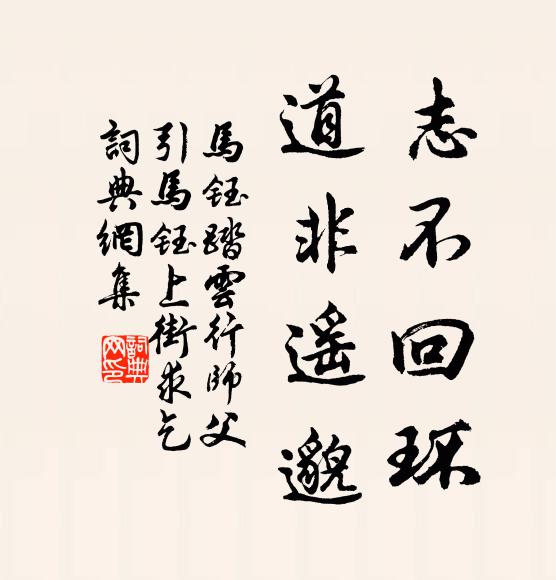 志不回环
道非遥邈
馬鈺踏雲行師父
引馬鈺上街求乞
詞典網集
詞典
网印